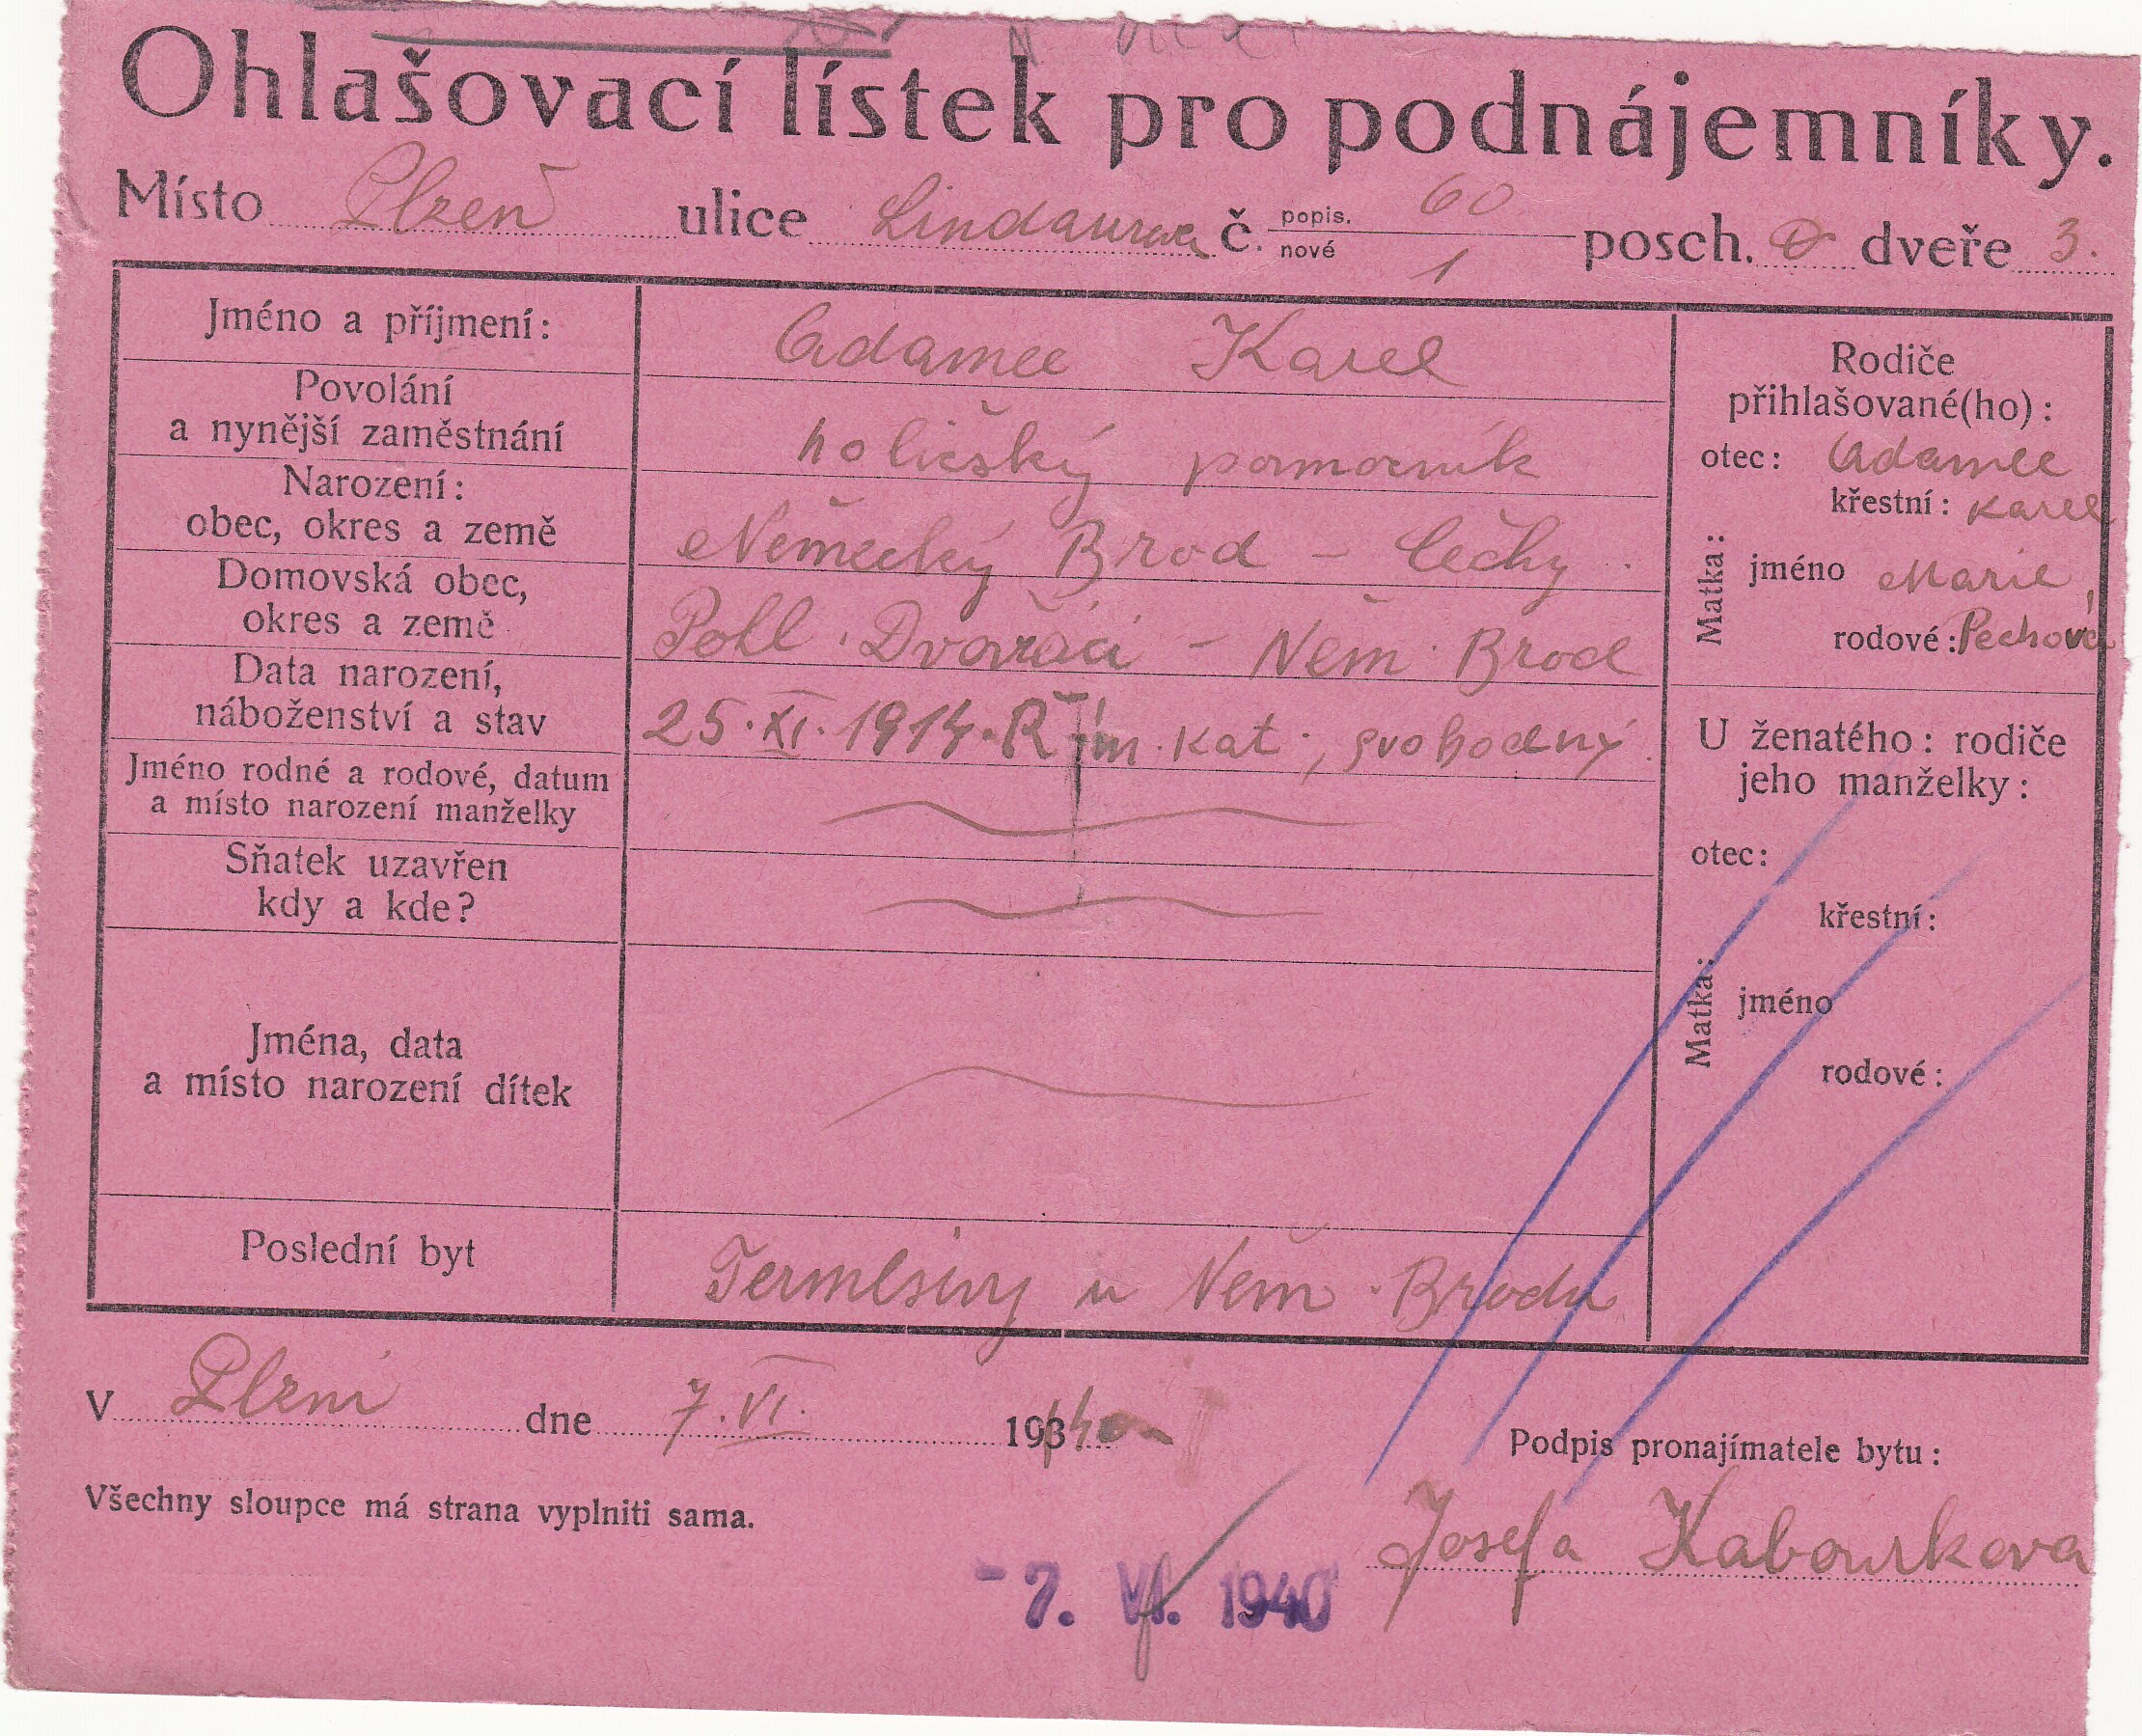 Ohlašovací lístek pro podnájemníky.
Místo Plzeň ulice Lindaurova č. popis. 60 nové 1 posch. 0 dveře 3.
Jméno a příjmení: Adamec Karel
Povolání
a nynější zaměstnání holičský pomocník
Narození:
obec, okres a země Německý Brod – Čechy.
Domovská obec,
okres a země Pohl. Dvořáci – Něm. Brod
Data narození,
náboženství a stav 25. XI. 1914. Řím. kat., svobodný.
Jméno rodné a rodové, datum
a místo narození manželky
Sňatek uzavřen
kdy a kde?
Jména, data
a místo narození dítek
Poslední byt Termesivy u Něm. Brodu
Rodiče
přihlašované(ho):
otec: Adamec
křestní: Karel
Matka: jméno Marie,
rodové: Pechová
U ženatého: rodiče
jeho manželky:
otec:
křestní:
Matka: jméno
rodové:
V Plzni dne 7. VI. 1940
Podpis pronajímatele bytu:
Všechny sloupce má strana vyplniti sama.
Josefa Kabourkova
-7. VI. 1940